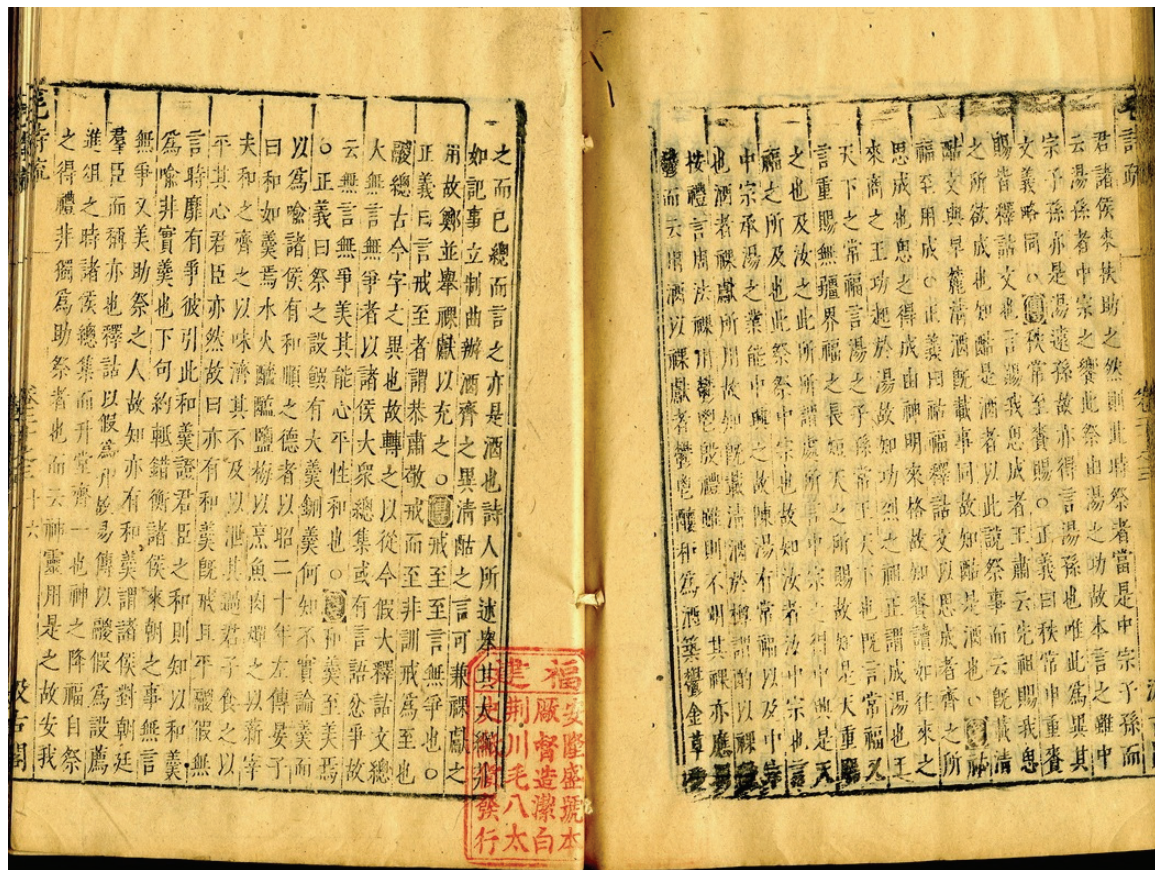 君諸侯來扶助之然則此時祭者當是中宗子孫而
云湯孫者中宗之饗此祭由湯之功故本言之雖中
宗子孫亦是湯遠孫故亦得言湯孫也唯此為異其
文義略同○傳秩常至賚賜○正義曰秩常申重賚
賜皆釋詁文也言賜我思成者王肅云先祖賜我思
之所欲成也知酤是酒者以此說祭事而云旣載清
酤文與旱麓清酒旣載事同故知酤是酒也○箋祜
福至用成○正義曰祜福釋詁文以思成者齊之所
思成也思之得成由神明來格故知賚讀如往來之
來商之王功起於湯故知功烈之祖正謂成湯也王
天下之常福言湯之子孫常王天下也旣言常福又
言重賜無疆界福之長短天之所賜故知是天重賜
之也及汝之此此所謂處所言中宗之得中也是天
福之所及也此祭祭中宗也故知汝者汝中宗也言
中宗承湯之業能中興之故陳湯有常福以及中宗
也酒者祼獻所用故知旣載清酒於樽酌以祼獻
按禮言周法祼用鬱鬯殷禮雖則不明其祼亦應
鬱而云清酒以祼獻者鬱鬯釀秬爲酒築鬱金草
之而已總而言之亦是酒也詩人所述舉其大綱非
如記事立制曲辦酒齊之異清酤之言可兼祼獻之
用故鄭並舉祼獻以充之○傳戒至至言無爭也○
正義曰言戒至者謂恭肅敬戒而至非訓戒爲至也
鬷總古今字之異也故轉之以從今假大釋詁文總
大無言無爭者以諸侯大衆總集或有言語忿爭故
云無言無爭美其能心平性和也○箋和羹至美焉
○正義曰祭之設饌有大羹鉶羹何知不實論羹而
以爲喩諸侯有和順之德者以昭二十年左傳晏子
曰和如羹焉水火醯醢鹽梅以烹魚肉燀之以薪宰
夫和之齊之以味濟其不及以泄其過君子食之以
平其心君臣亦然故曰亦有和羹旣戒且平鬷假無
言時靡有爭彼引此和羹證君臣之和則知以和羹
爲喩非實羹也下句約軧錯衡諸侯來朝之事無言
無爭又美助祭之人故知亦有和羹謂諸侯對朝廷
羣臣而稱亦也釋詁以假爲升故易傳以鬷假爲設薦
進俎之時諸侯總集而升堂齊一也神之降福自祭
之得禮非獨爲助祭者也而云神靈用是之故安我
毛詩疏
卷二十之三
十六
汲古閣
福建
安隆盛號本
厰督造潔白
荆川毛八太
史紙發行